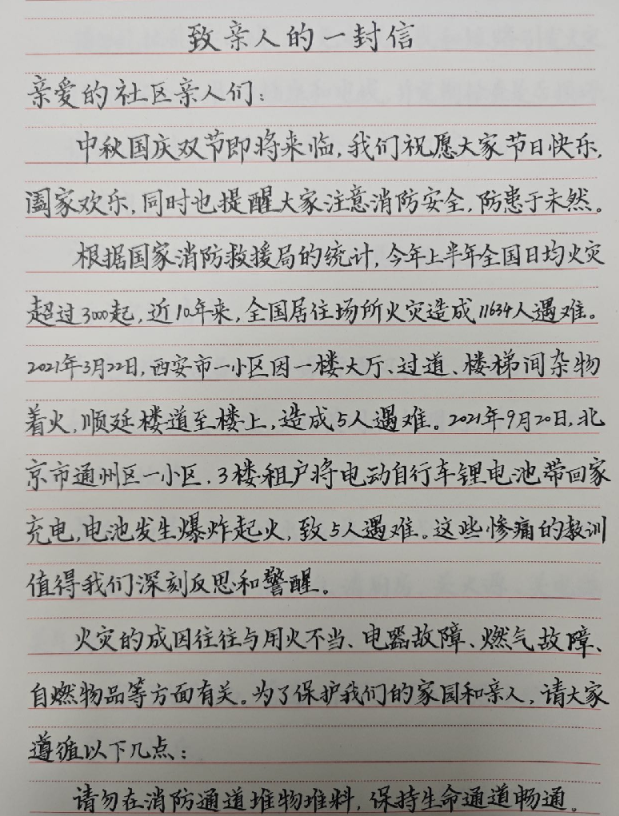 致亲人的一封信
亲爱的社区亲人们：
中秋国庆双节即将来临，我们祝愿大家节日快乐，
阖家欢乐，同时也提醒大家注意消防安全，防患于未然。
根据国家消防救援局的统计，今年上半年全国日均火灾
超过3000起，近10年来，全国居住场所火灾造成11634人遇难。
2021年3月22日，西安市一小区因一楼大厅、过道、楼梯间杂物
着火，顺延楼道至楼上，造成5人遇难。2021年9月20日，北
京市通州区一小区，3楼租户将电动自行车锂电池带回家
充电，电池发生爆炸起火，致5人遇难。这些惨痛的教训
值得我们深刻反思和警醒。
火灾的成因往往与用火不当、电器故障、燃气故障、
自燃物品等方面有关。为了保护我们的家园和亲人，请大家
遵循以下几点：
请勿在消防通道堆物堆料，保持生命通道畅通。